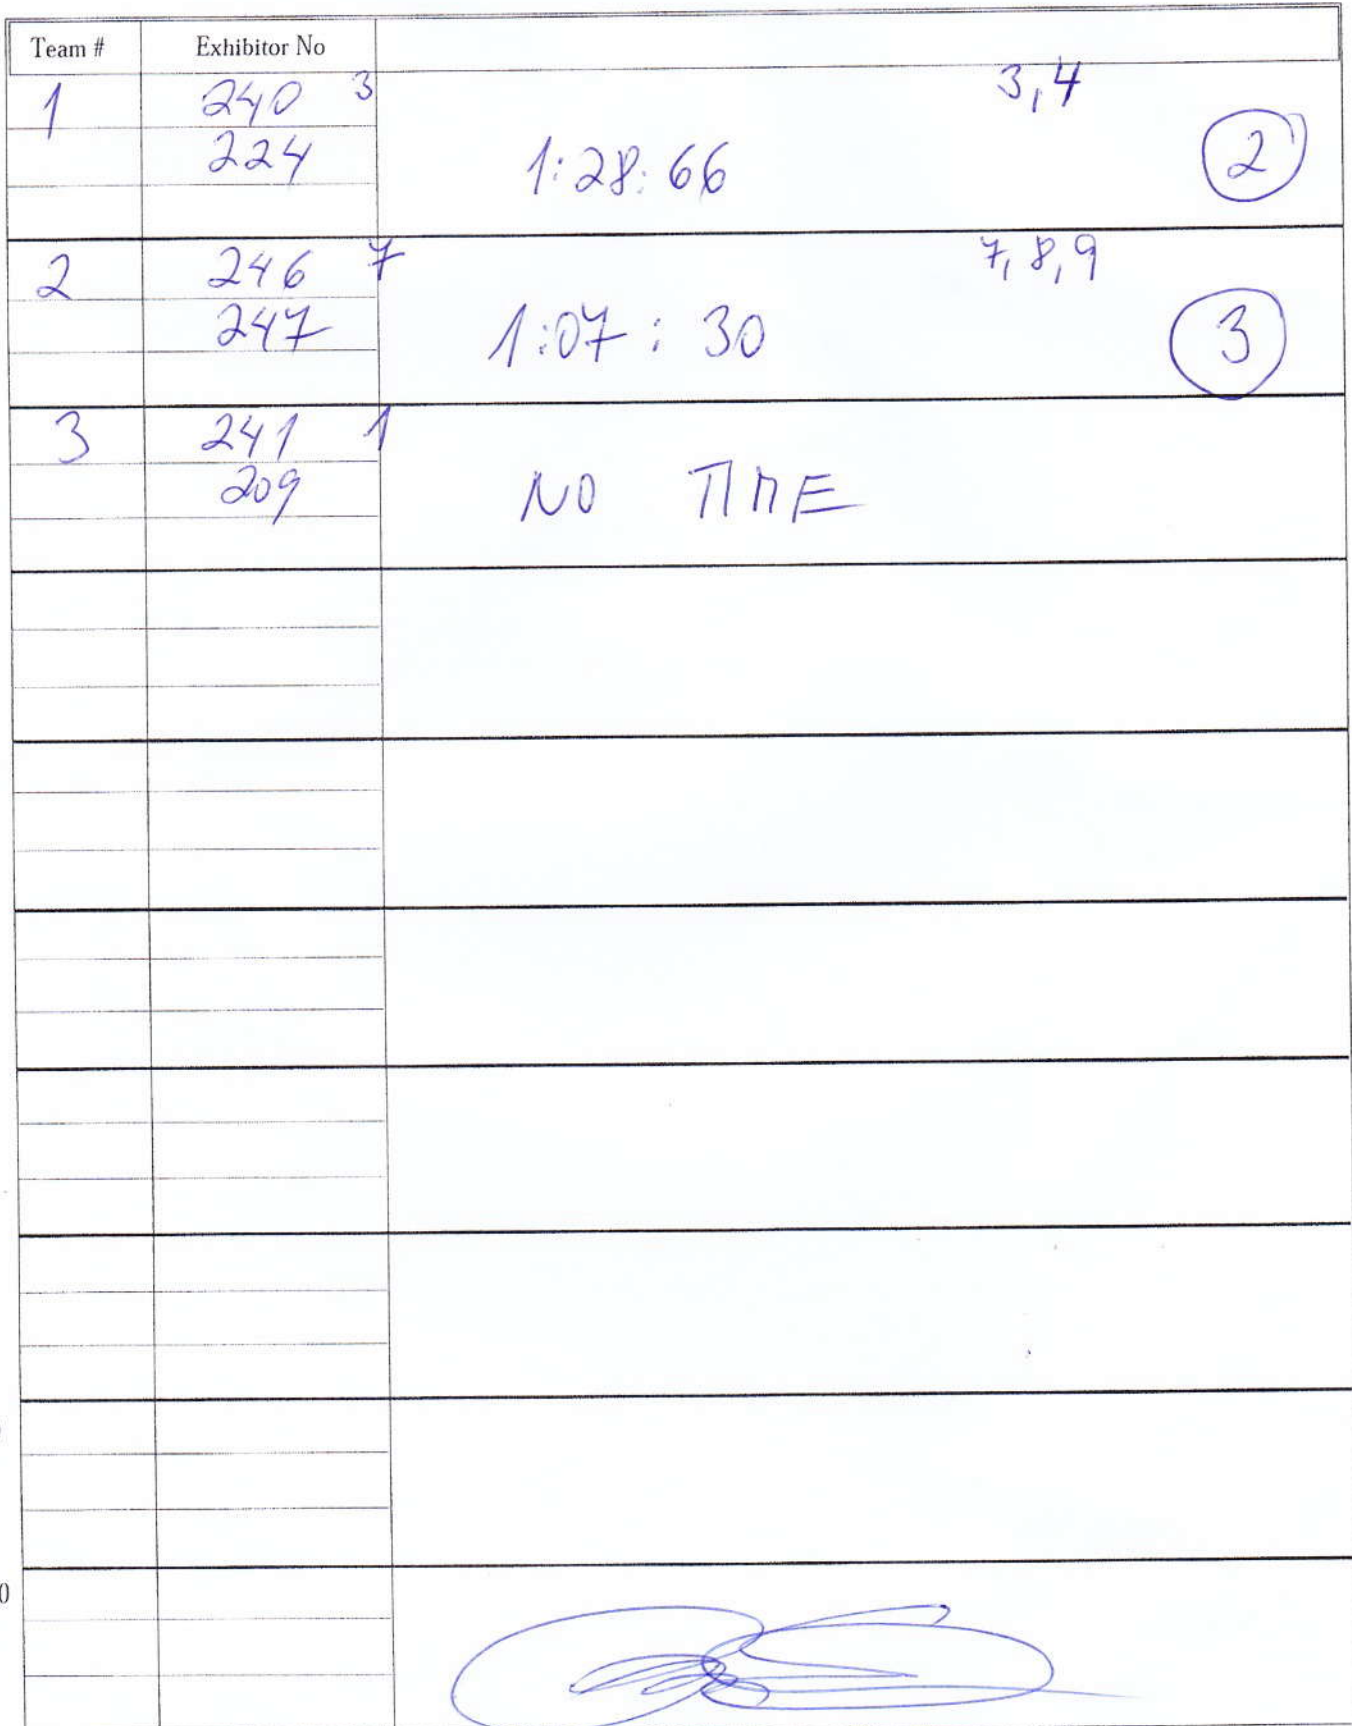 Team # Exhibitor No
1 240 3 3,4
224 1:28:66 2
2 246 7 7,8,9
247 1:07:30 3
3 241 1
209 NO TIME
0